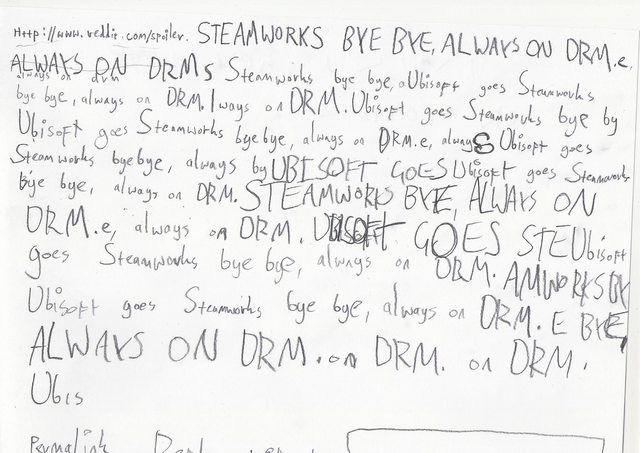 Http://www.reddit.com/spoiler. STEAMWORKS BYE BYE, ALWAYS ON DRM.e,
ALWAYS ON DRMs Steamworks bye bye, aUbisoft goes Steamworks
always on drm
bye bye, always on DRM.lways on DRM.Ubisoft goes Steamworks bye by
Ubisoft goes Steamworks bye bye, always on DRM.e, always Ubisoft goes
Steamworks bye bye, always by UBISOFT GOES Ubisoft goes Steamworks
bye bye, always on DRM. STEAMWORKS BYE, ALWAYS ON
DRM.e, always on DRM. UBISOFT GOES STEUbisoft
goes Steamworks bye bye, always on DRM. AMWORKS BY
Ubisoft goes Steamworks bye bye, always on DRM. E BYE,
ALWAYS ON DRM. on DRM. on DRM.
Ubis
Permalink